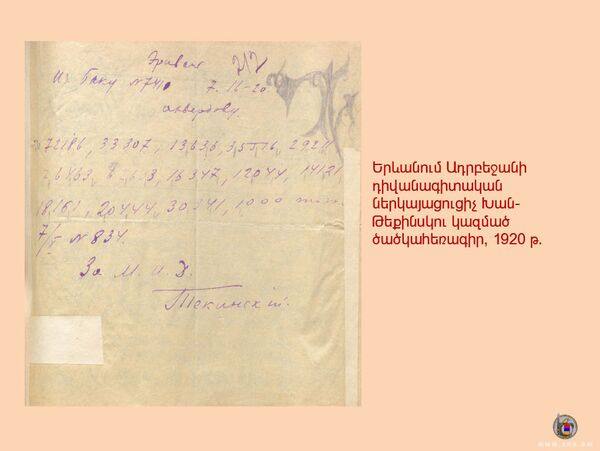 Эривань
Из Баку №740 7. 16-20.
72186, 33307, 13636, 35516, 2921
16347, 12044, 14121
18161, 20444, 30241, 1000
7/V № 834.
За М. И. Д.
Текинскій.
Երևանում Ադրբեջանի
դիվանագիտական
ներկայացուցիչ Խան-
Թեքինսկու կազմած
ծածկահեռագիր, 1920 թ.